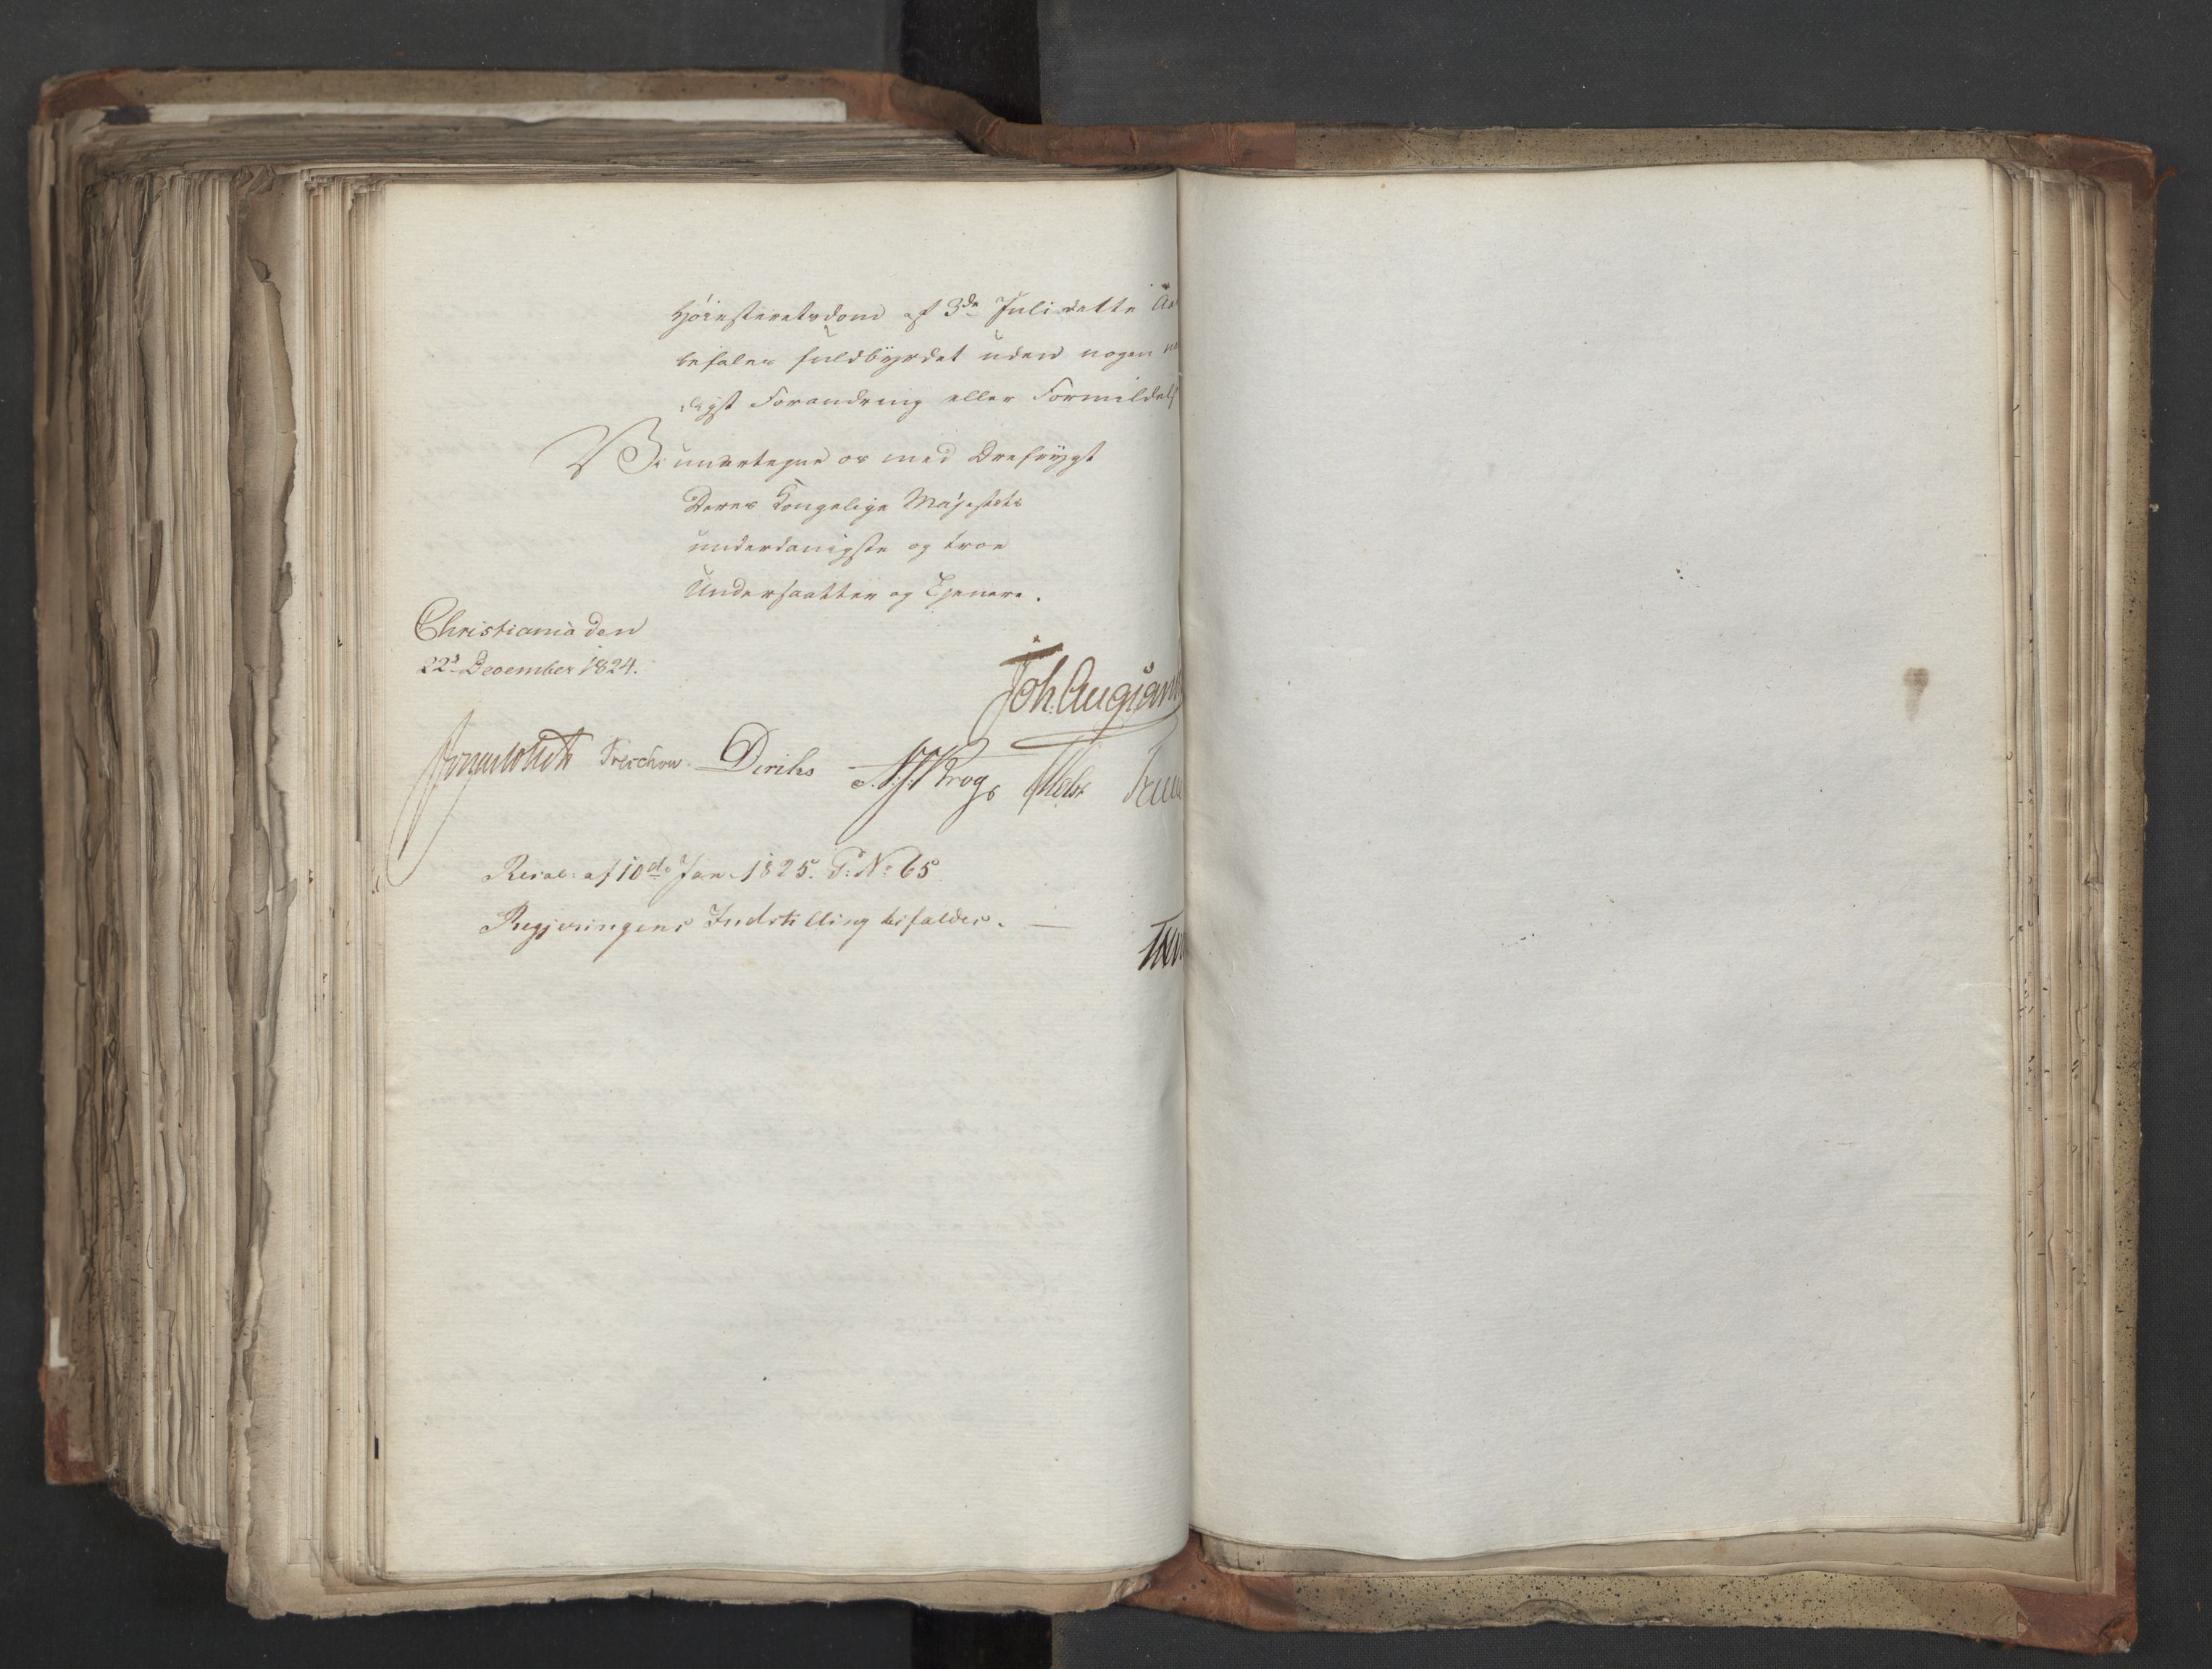 Høiesteretsdom af 3de Juli dette Aa
befales fuldbyrdet uden nogen
Forandring eller Formildels
Vi undertegne os med Ærefrygt
Deres Kongelige Majestæts
underdanigste og troe
Undersaatter og Tjenere.
Christiania den
22d December 1824.
Joh. Aug: Sand
Treschow. Diriks Krog
Resol: af 10de Jan. 1825. P: No 65
Regjeringens Indstilling bifaldes. —